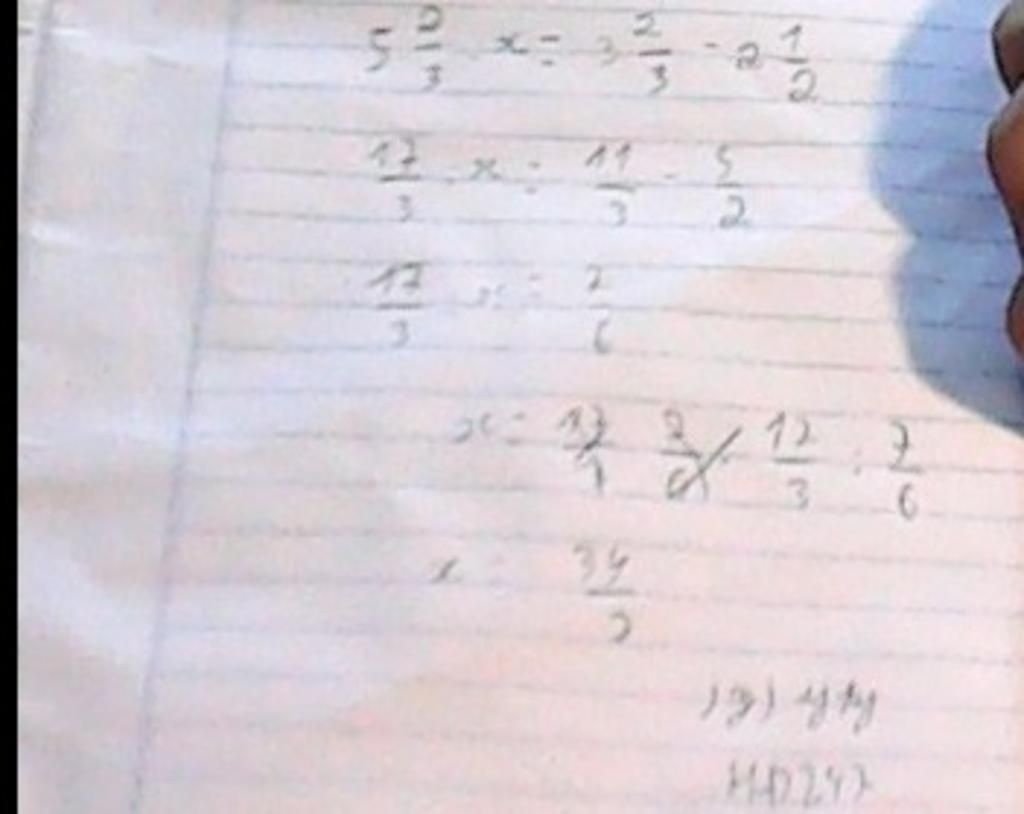 5 2/3 · x = 3 2/3 - 2 1/2
17/3 · x = 11/3 - 5/2
17/3 x = 7/6
x = 17/1 7/6 · 17/3 : 7/6
x = 34/7